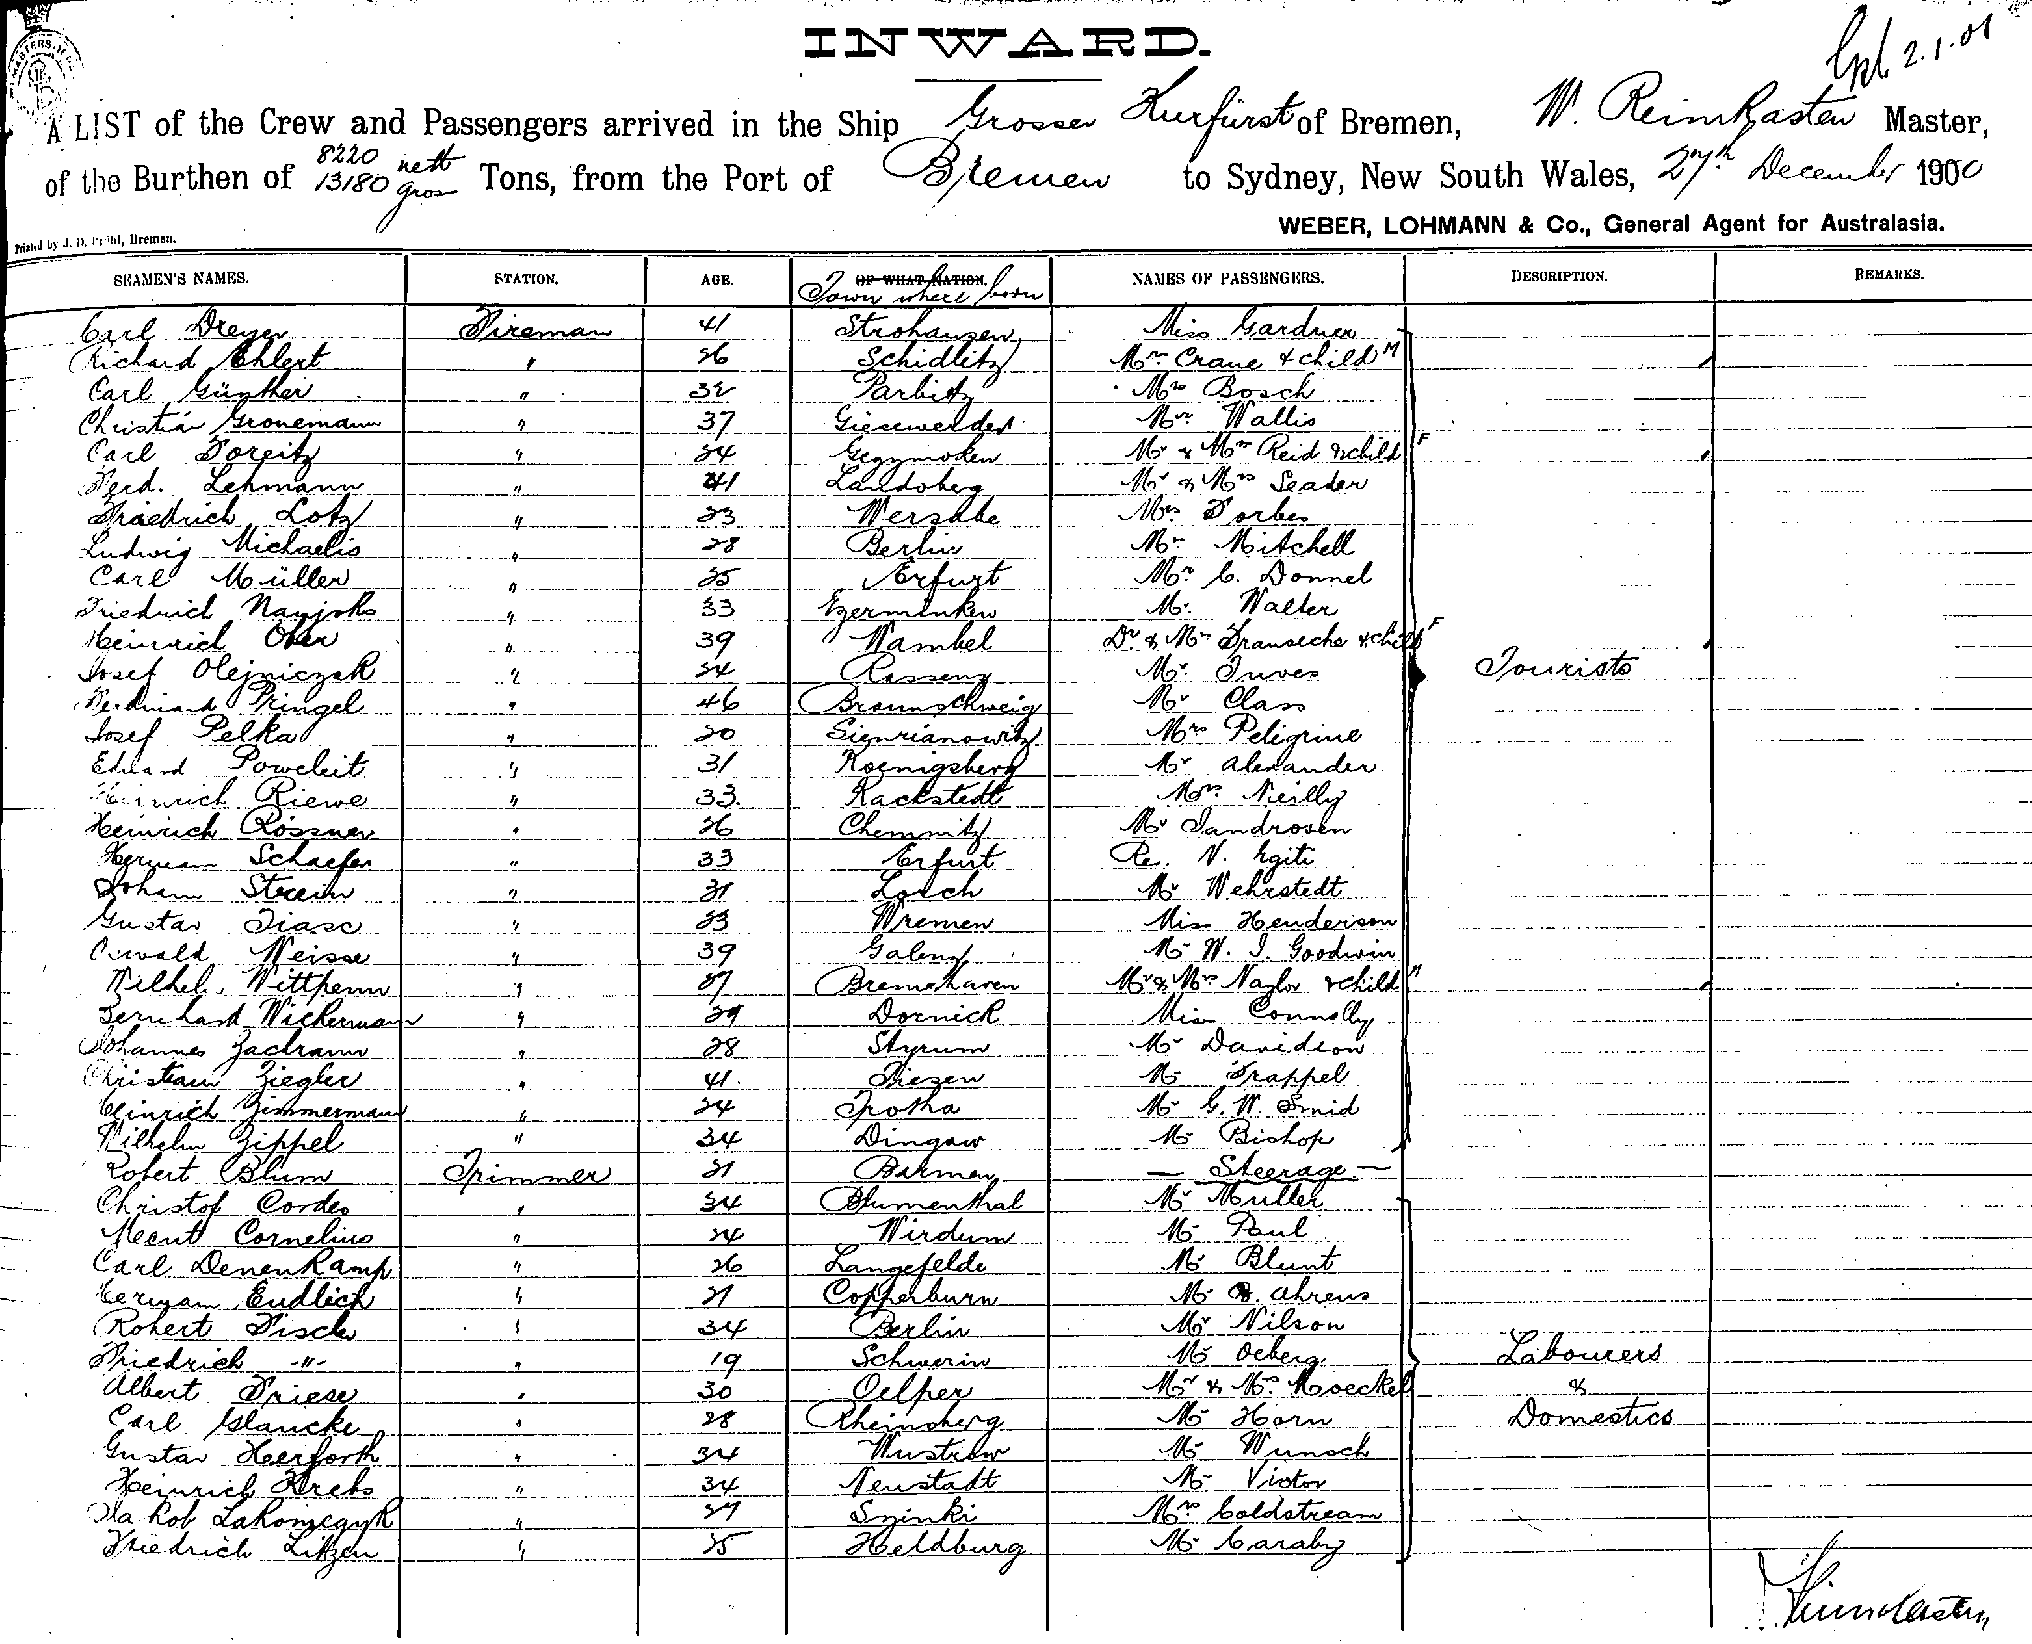 INWARD.
2.1.01
A LIST of the Crew and Passengers arrived in the Ship Grosser Kurfürst of Bremen, W. Reimkasten Master,
of the Burthen of 8220 nett 13180 gross Tons, from the Port of Bremen to Sydney, New South Wales, 27th December 1900
WEBER, LOHMANN & Co., General Agent for Australasia.
Printed by J. D. Bremen.
SEAMEN'S NAMES. STATION. AGE. OF WHAT NATION. Town where born NAMES OF PASSENGERS. DESCRIPTION. REMARKS.
Carl Dreyer Fireman 41 Strohausen Miss Gardner
Richard Ehlert " 26 Schidlitz Mrs Crane & child M
Carl Günther " 32 Parbitz Mrs Bosch
Christian Gronemann " 37 Giesewerder Mr Wallis
Carl Foreitz " 24 Mr & Mrs Reid & child F
Ferd. Lehmann " 41 Landsberg Mr & Mrs Seader
Friedrich Lotz " 23 Wersabe Mrs Forbes
Ludwig Michaelis " 28 Berlin Mr Mitchell
Carl Müller " 25 Erfurt Mr C. Donnel
Friedrich Nayjoks " 33 Ezerminken Mr. Walter
Heinrich Ober " 39 Wambel Dr & Mrs Fransecke & child F
Josef Olejniczak " 24 Rassenz Mr. Tuves Tourists
Ferdinand Pringel " 46 Braunschweig Mr Class
Josef Pelka " 20 Siemianowitz Mrs Peligrine
Eduard Poweleit " 31 Koenigsberg Mr Alexander
Heinrich Riewe " 33 Rackstedt Mrs Neilly
Heinrich Rössner " 26 Chemnitz Mr Sandrosen
Herman Schaefer " 33 Erfurt Re. V. Egiti
Johann Strein " 31 Losch Mr Wehrstedt
Gustav Tiasc " 23 Wremen Miss Henderson
Oswald Weisse " 39 Galenz Mr W. J. Goodwin
Wilhel. Wittpenn " 27 Bremehaven Mr & Mrs Naylor & child M
Bernhard Wickermann " 29 Dornick Miss Connolly
Johannes Zachrann " 28 Styrum Mr Davidson
Christian Ziegler " 41 Fiezen Mr Trappel
Heinrich Zimmermann " 24 Trotha Mr G. W. Smid
Wilhelm Zippel " 34 Dingaw Mr Bishop
Robert Blum Trimmer 21 Barmen — Steerage —
Christof Cordes " 34 Blumenthal Mr Muller
Meent Cornelius " 24 Wirdum Mr Paul
Carl Denenkamp " 26 Langefelde Mr Blunt
Herman Endlich " 21 Copperburn Mr B. Ahrens
Robert Fischer " 34 Berlin Mr Nilson
Friedrich -"- " 19 Schwerin Mr Oeberg Labourers
Albert Friese " 30 Oelper Mr & Mrs Moeckel &
Carl Glancke " 28 Rheinsberg Mr Horn Domestics
Gustav Heerforth " 34 Wustrow Mr Wunsch
Heinrich Krebs " 34 Neustadt Mr Victor
Jakob Lakomczyk " 27 Szinki Mrs Coldstream
Friedrich Litzen " 25 Heldburg Mr Caraby
Reimkasten